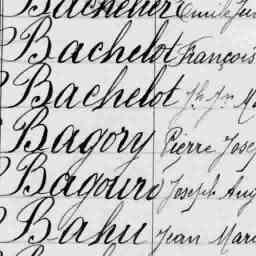 Bachelier Emile
Bachelot François
Bachelot Jh Jn
Bagory Pierre Jose
Bagouro Joseph Aug
Bahu Jean Mari